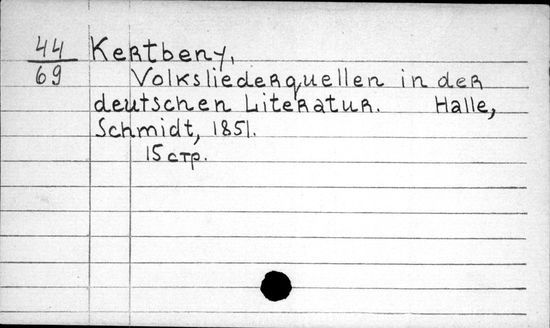 44
69
Kertbeny,
Volksliederquellen in der
deutschen Literatur. Halle,
Schmidt, 1851.
15 стр.